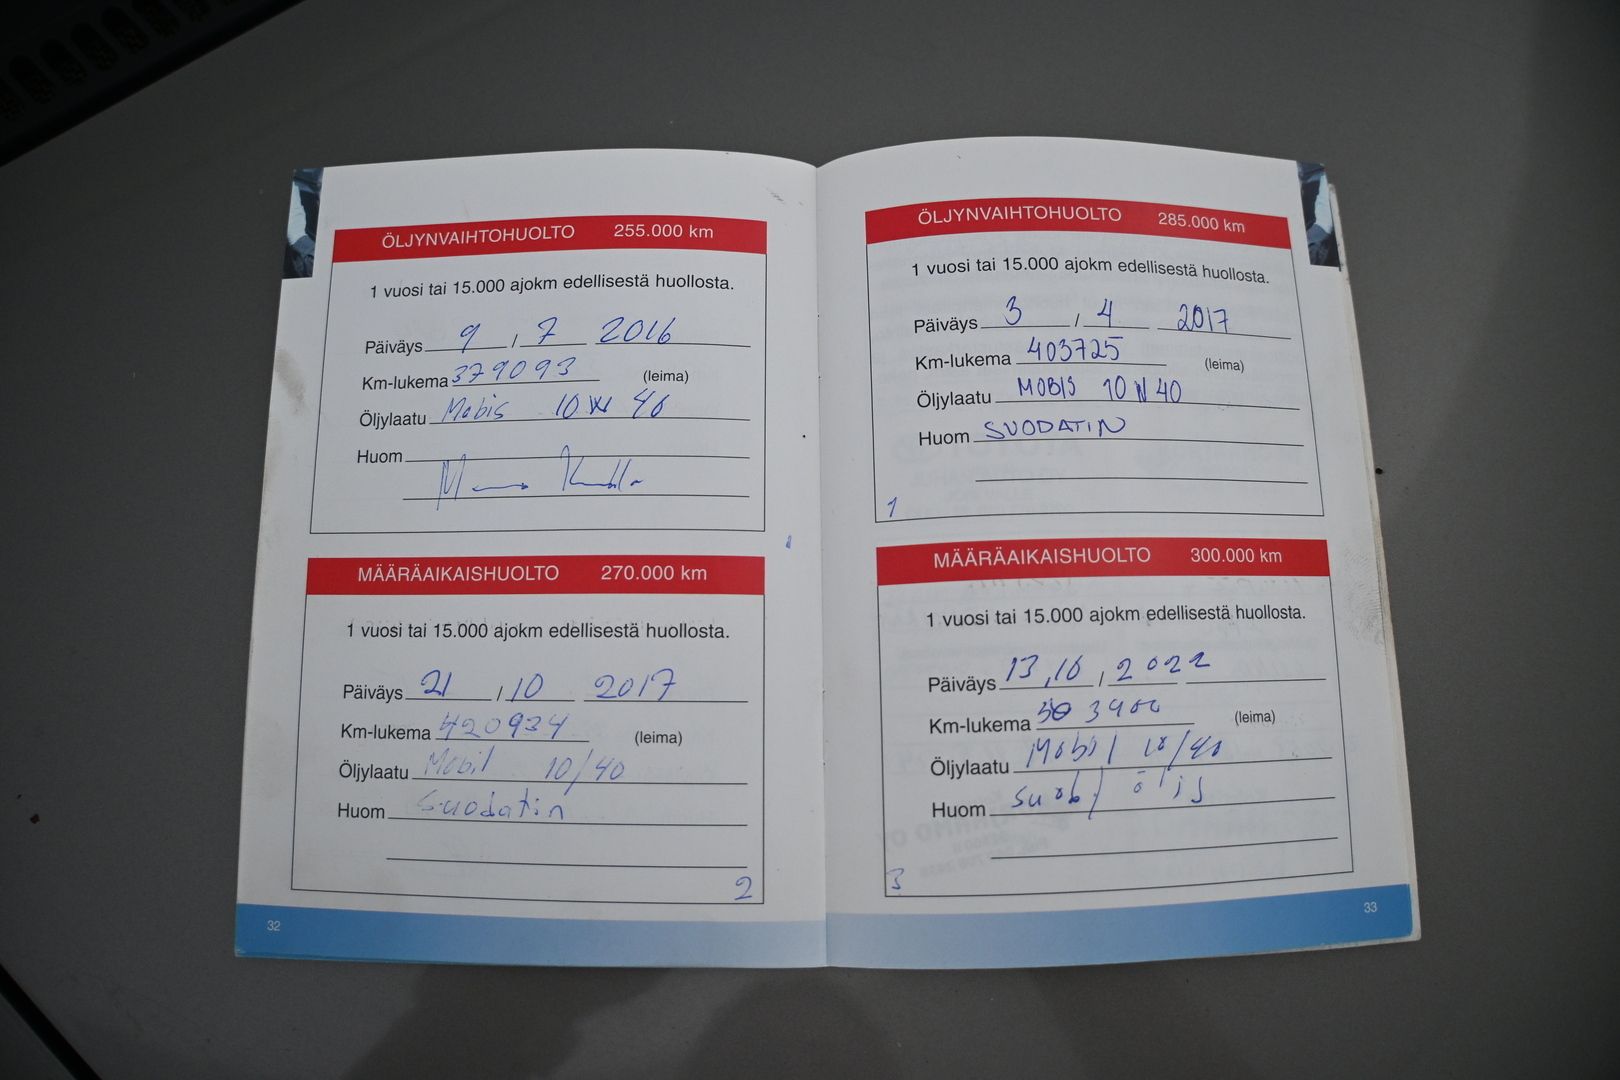 ÖLJYNVAIHTOHUOLTO 255.000 km
1 vuosi tai 15.000 ajokm edellisestä huollosta.
Päiväys 9 / 7 2016
Km-lukema 379093 (leima)
Öljylaatu Mobis 10 W 40
Huom
MÄÄRÄAIKAISHUOLTO 270.000 km
1 vuosi tai 15.000 ajokm edellisestä huollosta.
Päiväys 21 / 10 2017
Km-lukema 420934 (leima)
Öljylaatu Mobil 10/40
Huom Suodatin
2
32
ÖLJYNVAIHTOHUOLTO 285.000 km
1 vuosi tai 15.000 ajokm edellisestä huollosta.
Päiväys 3 / 4 2017
Km-lukema 403725 (leima)
Öljylaatu MOBIS 10 W 40
Huom SUODATIN
1
MÄÄRÄAIKAISHUOLTO 300.000 km
1 vuosi tai 15.000 ajokm edellisestä huollosta.
Päiväys 13,10 / 2022
Km-lukema (leima)
Öljylaatu Mobil 10/40
Huom
3
33